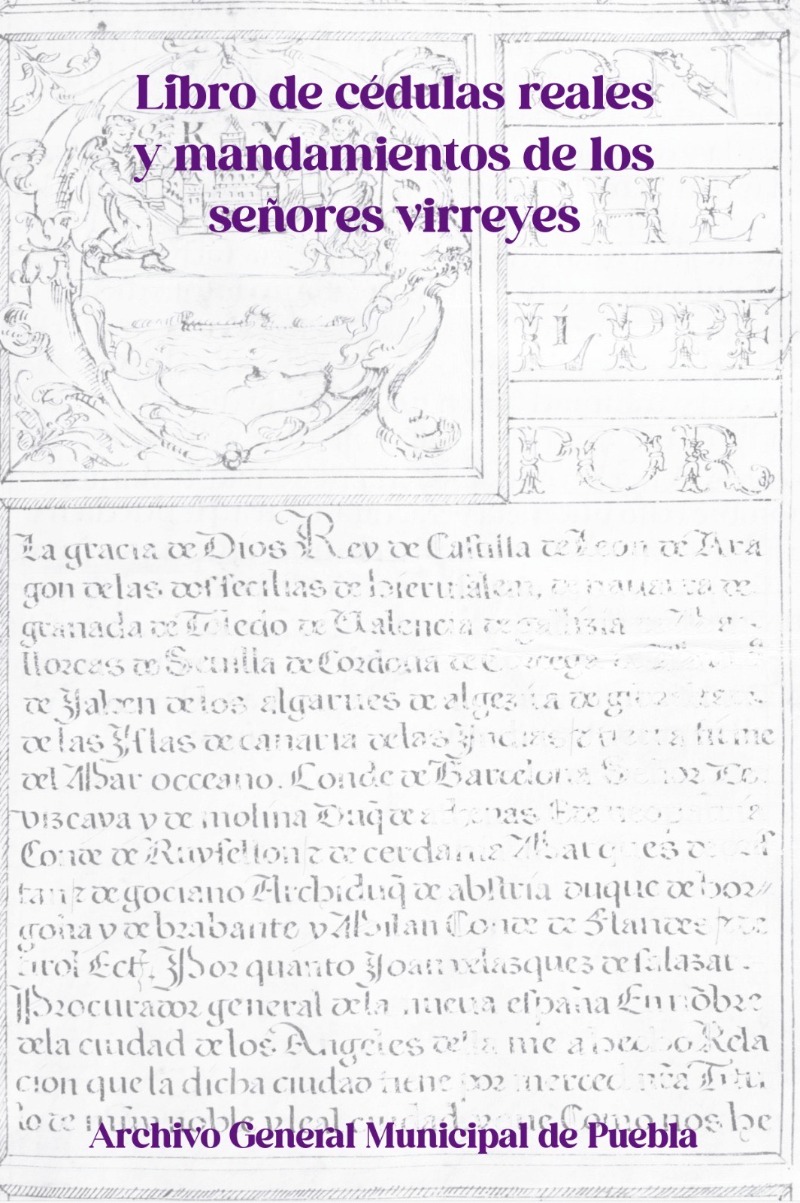 Libro de cédulas reales
y mandamientos de los
señores virreyes
K V
ON
PHE
LIPPE
POR
La gracia de Dios Rey de Castilla de Leon de Ara
gon de las dos secilias de hierusalem, de nauarra de
granada de Toledo de Ualencia de gallizia
llorcas de Seuilla de Cordoua de Corcega
de Jahen de los algarues de algezira de gibraltar
de las Yslas de canaria de las Yndias tierra firme
del Mar occeano. Conde de Barcelona Señor de
vizcaya y de molina Duq̃ de athenas
Conde de Ruysellon de cerdania Marques de
tan de gociano Archiduq̃ de abstria duque de bor
goña y de brabante y Milan Conde de Flandes de
tirol Ect. Por quanto Joan velasquez de salazar.
Procurador general de la nueua españa En nõbre
de la ciudad de los Angeles della me a hecho Rela
cion que la dicha ciudad tiene por merced nr̃a Titu
lo de muy noble y leal ciudad y que Como nos he
Archivo General Municipal de Puebla